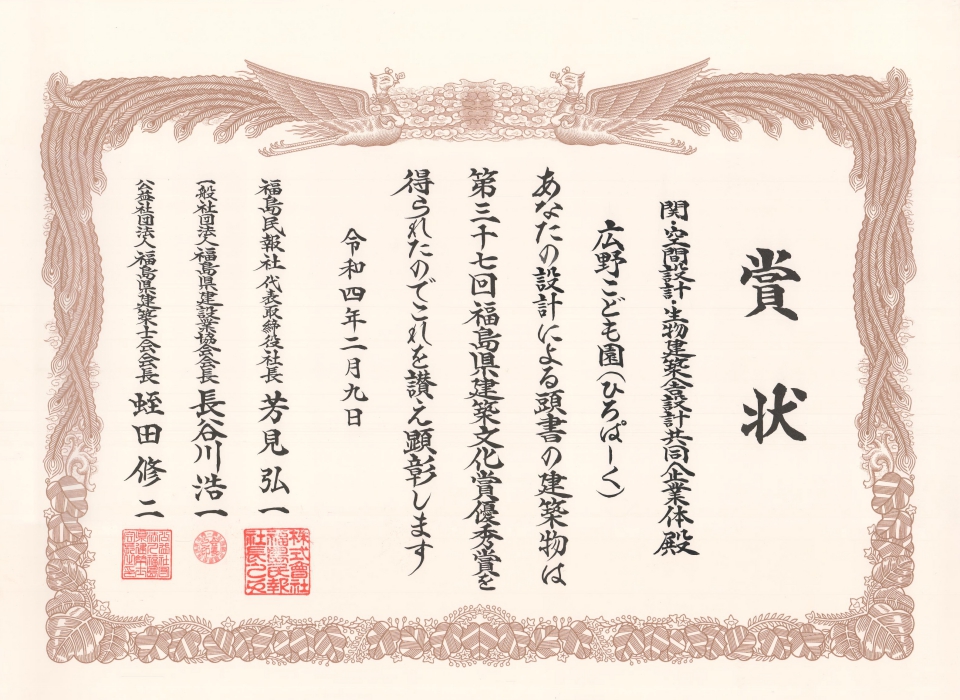 賞状
関・空間設計・生物建築舎設計共同企業体殿
広野こども園(ひろぱーく)
あなたの設計による頭書の建築物は
第三十七回福島県建築文化賞優秀賞を
得られたのでこれを讃え顕彰します
令和四年二月九日
福島民報社 代表取締役社長 芳見弘一
一般社団法人 福島県建設業協会会長 長谷川浩一
公益社団法人 福島県建築士会会長 蛭田修二